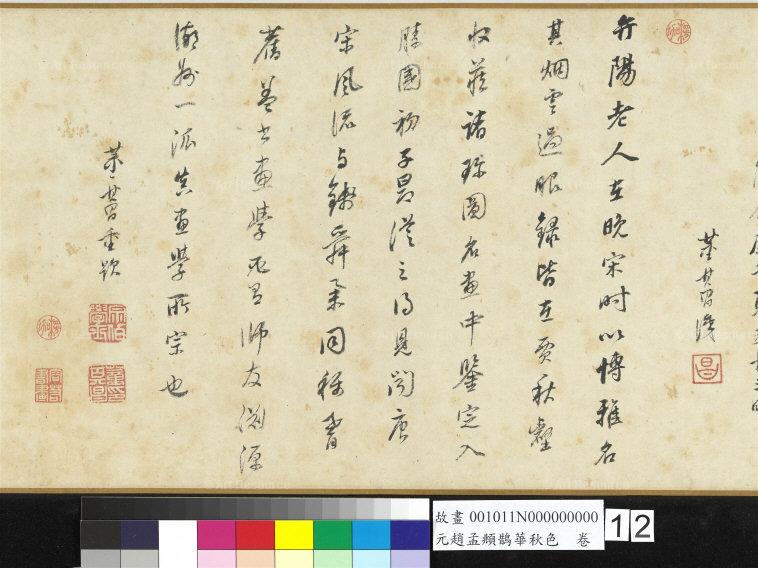 董其昌識
弁陽老人在晚宋時以博雅名
其烟雲過眼録皆在賈秋壑
收藏諸珍圖名畫中鑒定入
勝國初子昂從之得見聞唐
宋風流與錢舜舉同稱耆
舊蓋書畫學必有師友淵源
湖州一派真畫學所宗也
董其昌重題
昌
故畫 001011N000000000
元趙孟頫鵲華秋色 卷
12